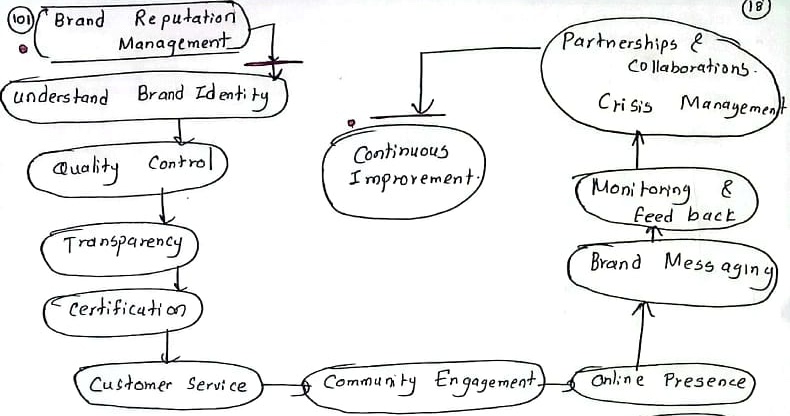 101 Brand Reputation
Management
18
Understand Brand Identity
Quality Control
Transparency
Certification
Customer Service
Community Engagement
Online Presence
Brand Messaging
Monitoring &
feed back
Partnerships &
Collaborations.
Crisis Management
Continuous
Improvement.